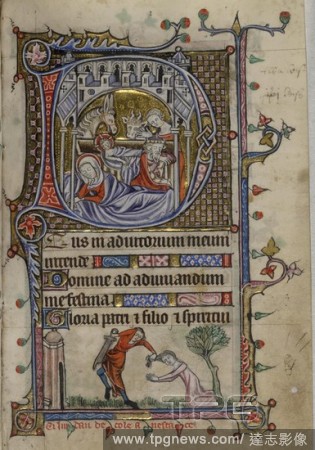 Deus in adiutorium meum
intende
Domine ad adiuvandum
me festina
Gloria patri et filio et spiritui
TPG
www.tpgnews.com | 達志影像